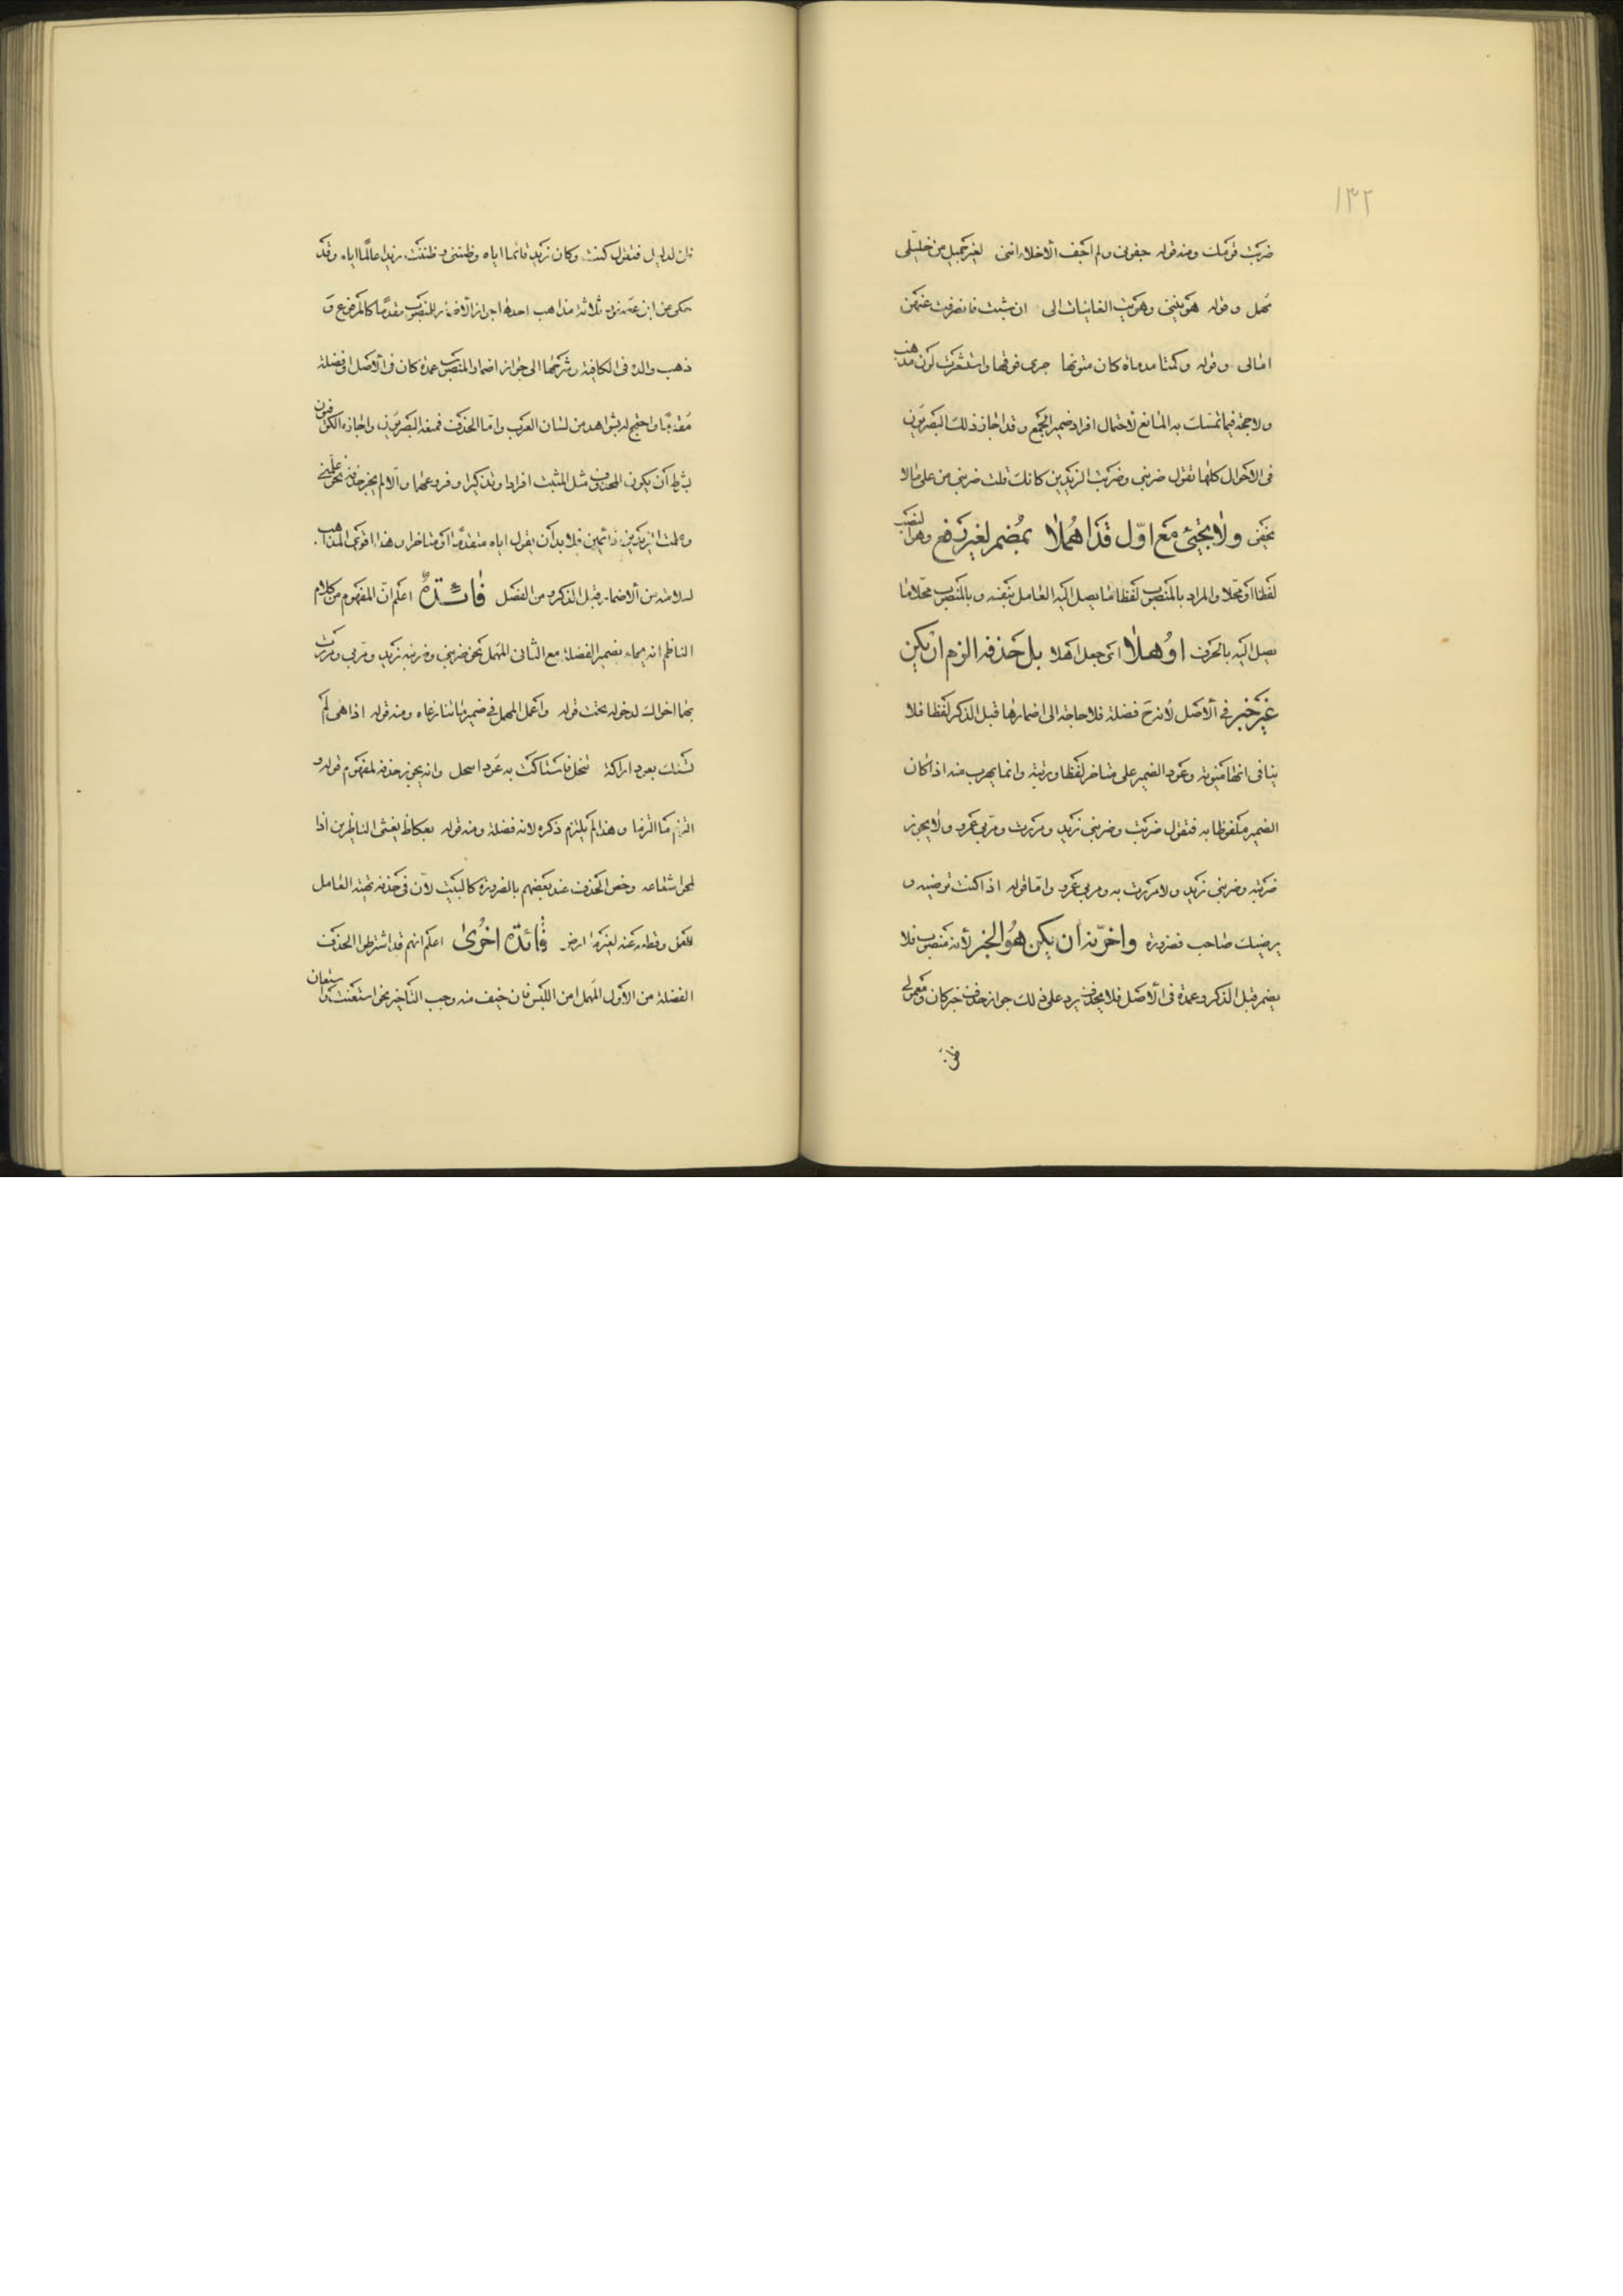 ١٣٢
ضربت قومك ومنه قوله جفونى ولم اجف الاخلاء اننى لغير جميل من خليلى
مهمل وقوله هويننى وهويت الغانيات الى ان شبت فانصرفت عنهن
امالى وقوله وكمتا مدماة كان متونها جرى فوقها واستشعرت لون مذهب
ولا حجة فيما تمسك به المانع لاحتمال افراد ضمير الجمع وقد اجاز ذلك البصريون
فى الاحوال كلها تقول ضربنى وضربت الزيدين كانك قلت ضربنى من على مالا
يخفى ولا يجئى مع اوّل قد اهملا بمضمر لغير رفع وهو النصب
لفظا او محلا والمراد بالمنصوب لفظا ما يصل اليه العامل بنفسه وبالمنصوب محلا ما
يصل اليه بالحرف اوهلا اى جعل اهلا بل حذفه الزم ان يكن
غير خبر فى الاصل لانه ح فضلة فلا حاجة الى اضمارها قبل الذكر لفظا فلا
ينافى انها منوية وعود الضمير على متاخر لفظا ورتبة وانما يهرب منه اذا كان
الضمير ملفوظا به فتقول ضربت وضربنى زيد ومررت ومر بى عمرو ولا يجوز
ضربته وضربنى زيد ولا مررت به ومر بى عمرو واما قوله اذا كنت ترضيه و
يرضيك صاحب فضرورة واخّرنه ان يكن هو الخبر لانه منصوب فلا
يضمر قبل الذكر وعمدة فى الاصل فلا يحذف يرد على ذلك جواز حذف خبر كان ومفعولى
ظن
ظن لدليل فتقول كنت وكان زيد قائما اياه وظننى وظننت زيدا عالما اياه وقد
حكى عن ابن عصفور ثلاثة مذاهب احدها جواز الاضمار للمنصوب مقدما كالمرفوع و
ذهب والده فى الكافية وشرحها الى جواز اضمار المنصوب عمدة كان فى الاصل او فضلة
مقدما واحتج له بشواهد من لسان العرب واما الحذف فمنعه البصريون واجازه الكوفيون
بشرط ان يكون المحذوف مثل المثبت افرادا وتذكيرا وفروعهما والا لم يجز حذفه نحو علمنى
وعلمت الزيدين قائمين فلا بد ان يقول اياه متقدما او متاخرا وهذا اقوى المذاهب
لسلامته من الاضمار قبل الذكر ومن الفصل فائدة اعلم ان المفهوم من كلام
الناظم انه يجاء بضمير الفضلة مع الثانى المهمل نحو ضربنى وضربته زيد ومر بى ومررت
بهما اخواك لدخوله تحت قوله واعمل المهمل فى ضمير ما تنازعاه ومنه قوله اذا هى لم
تستك بعود اراكة تنخل فاستاكت به عود اسحل وانه يجوز حذفه لمفهوم قوله و
التزم ما التزما وهذا لم يلتزم ذكره لانه فضلة ومنه قوله بعكاظ يغشى الناظرين اذا
لمحوا شعاعه وخص الحذف عند بعضهم بالضرورة كالبيت لان فى حذفه تهيئة العامل
للعمل وقطعه عنه لغير معارض فائدة اخرى اعلم انهم قد اشترطوا لحذف
الفضلة من الاول المهمل امن اللبس فان خيف منه وجب التاخير نحو استعنت واستعان